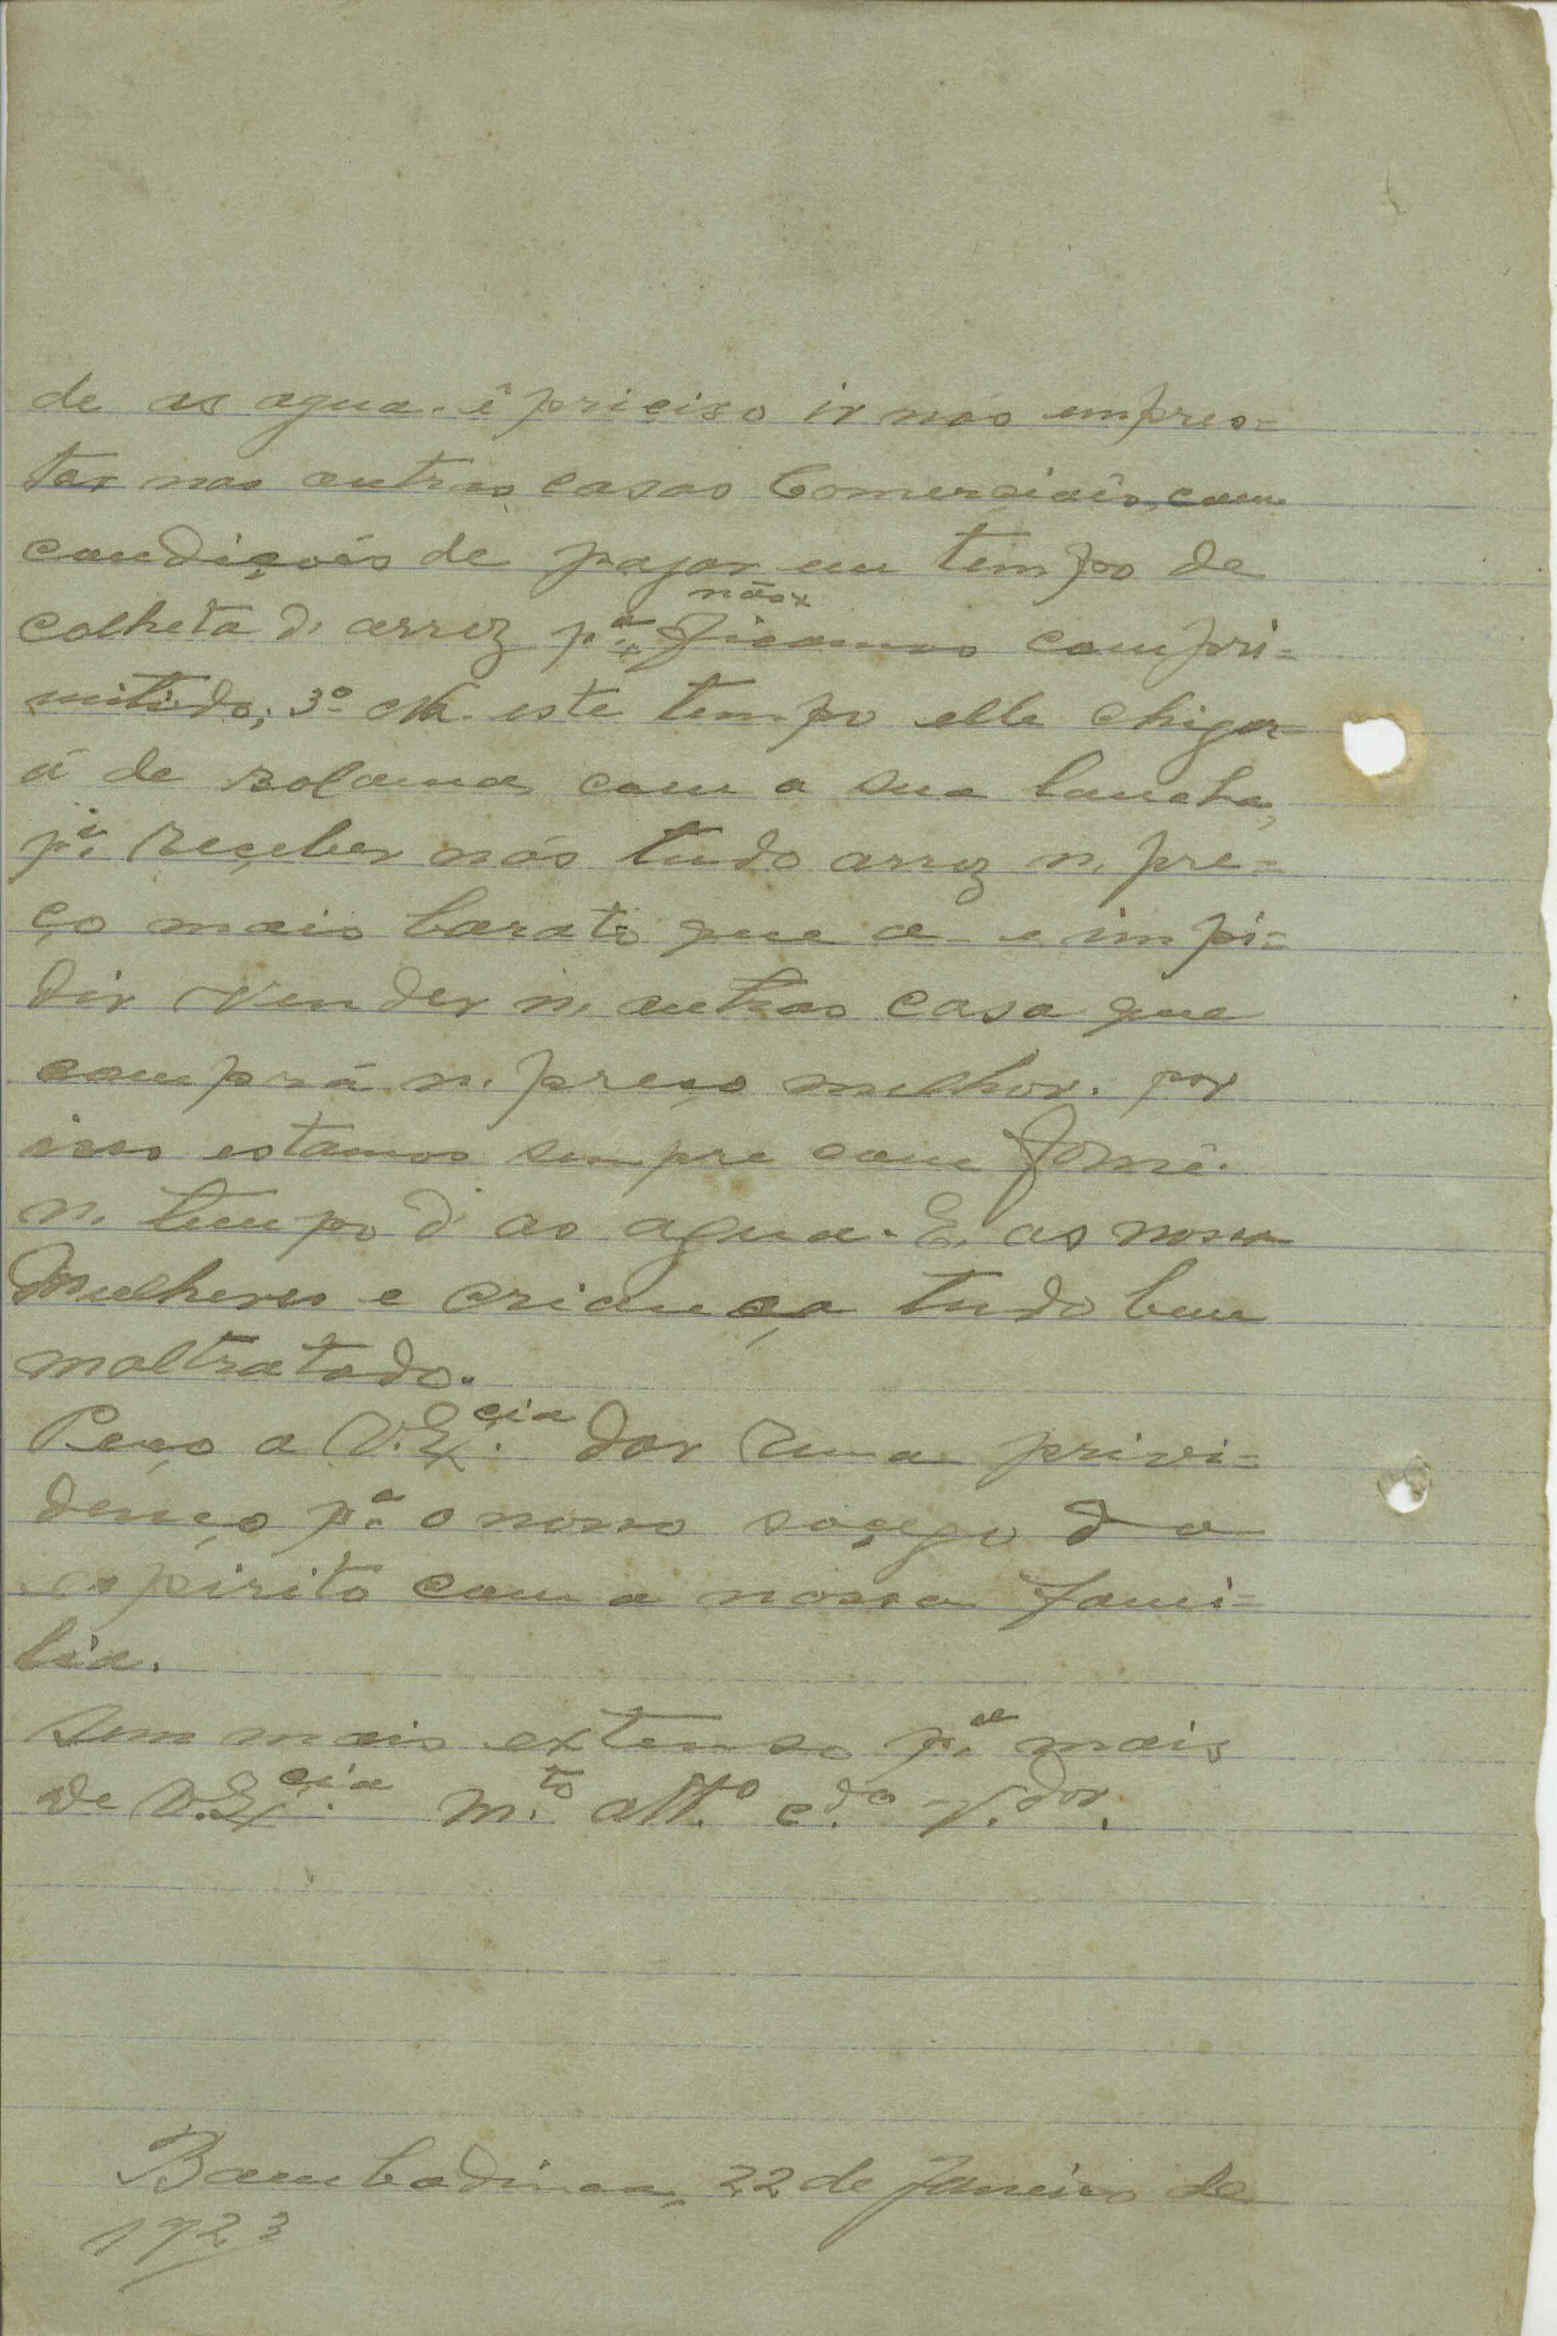 de as agua. ê priciso ir nós empres=
tar nas outras casas Comerciais, com
condiçoês de pagar em tempo de
colheta d. arroz p.ª nós ficamos compri=
mitido; 3º N. este tempo elle chigar
á de Bolama com a sua lancha,
p.ª receber nós tudo arroz n. pre=
ço mais barato que a e impi=
dir vender n. outras casa que
comprá n. preço melhor. por
isso estamos sempre com fomê.
n. tempo d' as agua. E, as nossa
Mulheres e criança tudo bem
maltratado.
Peço a V.Ex.cia dar uma privi=
dença p.ª o nosso soçego da
espirito com a nossa fami=
lia.
Sem mais extenso p.ª mais
de V.Ex.cia m.to att.o c.do v.dor.
Bambadinca, 22 de Janeiro de
1923